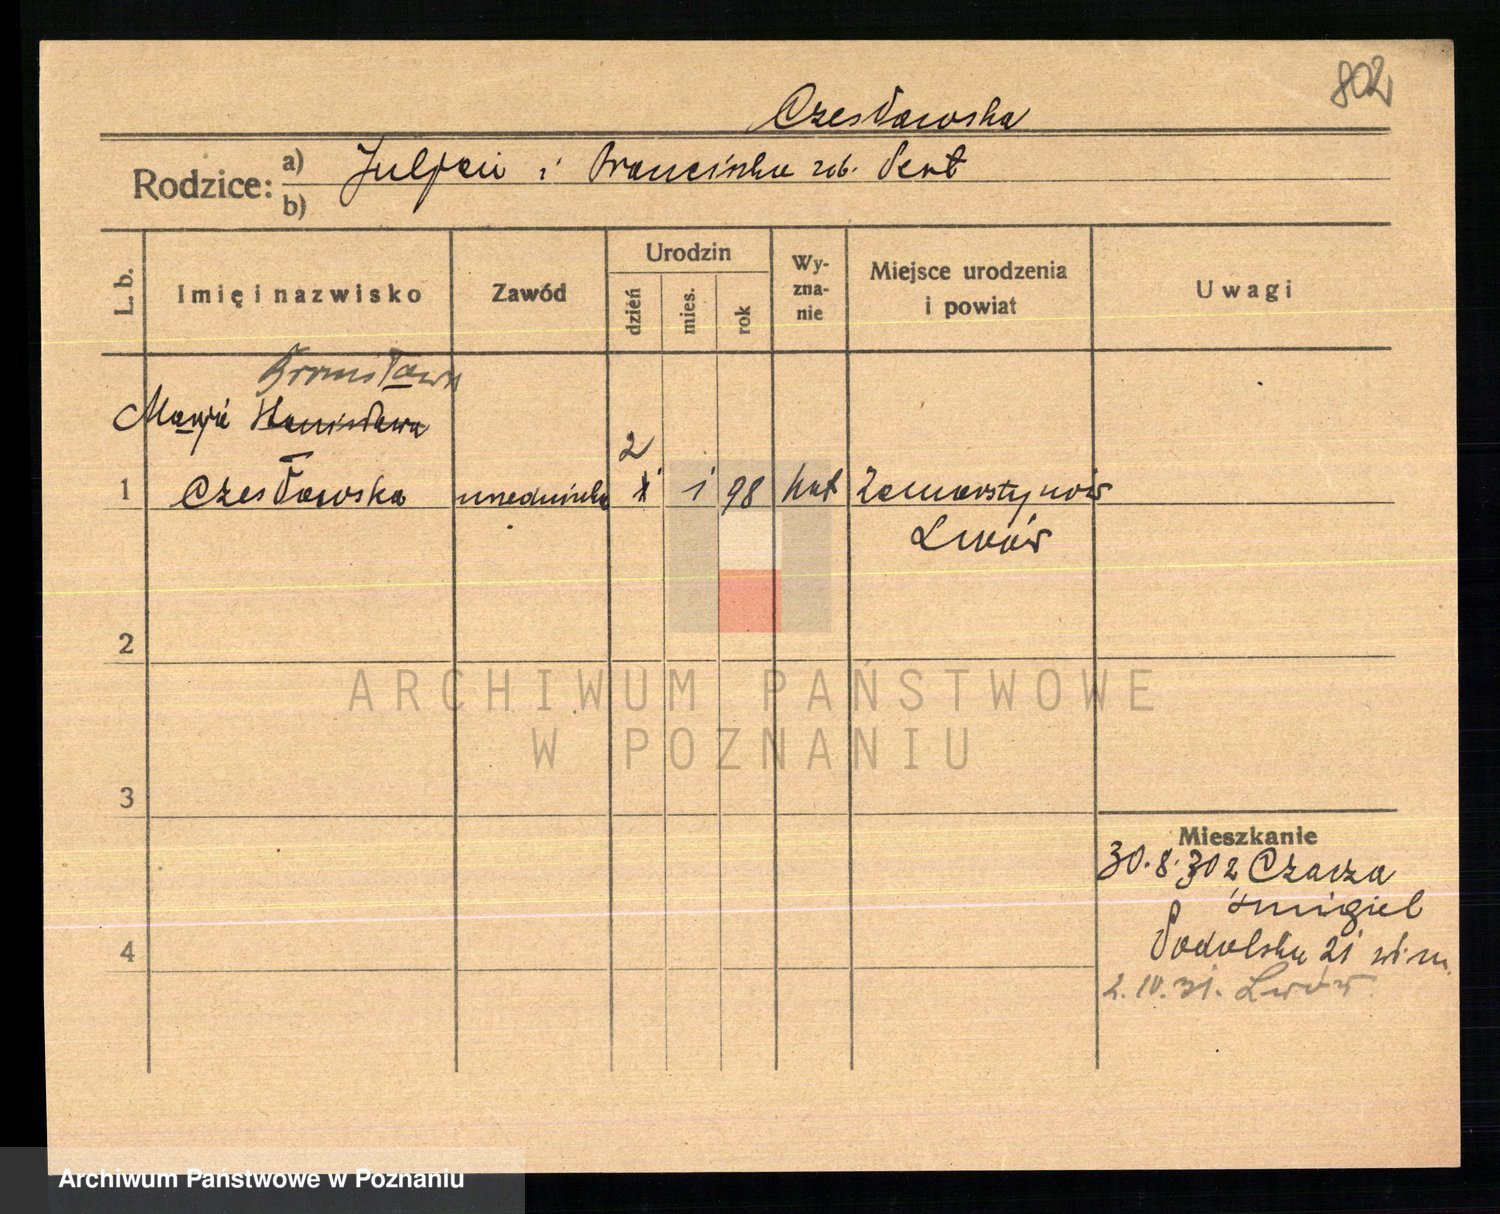 802
Czesławska
Rodzice: a) Juljan i Franciszka rob. Pert
b)
L. b. Imię i nazwisko Zawód Urodzin dzień mies. rok Wy-zna-nie Miejsce urodzenia i powiat Uwagi
Bronisława
Marja Stanisława
2
1 Czesławska urzedniczka 1 1 98 kat Zamarstynów
Lwów
2
ARCHIWUM PAŃSTWOWE
W POZNANIU
3
Mieszkanie
30.8.30 z Czacza
Śmigiel
4 Podolska 21
2.IV.31. Lwów
Archiwum Państwowe w Poznaniu